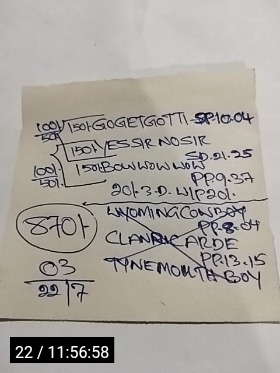 100/- 150/- GOGETGOTTI - SP.10.04
50/-
150/- YESSIRNOSIR
SP.21.25
100/- 150/- BOWWOWWOW
50/- PP.9.37
20/- 3.D. WIP 20/-
870/- WYOMINGCOWBOY
PP.8.04
CLANRICARDE
03 PP.13.15
22/7 TYNEMOUTH BOY
22 / 11:56:58